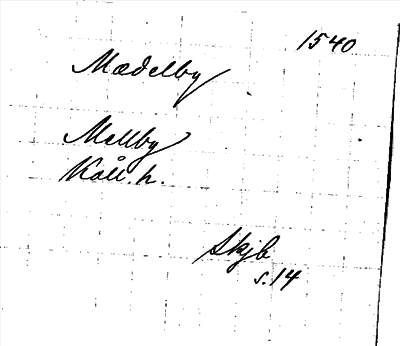 1540
Mædelby
Mellby
Kåll. h.
Skjb
s. 14